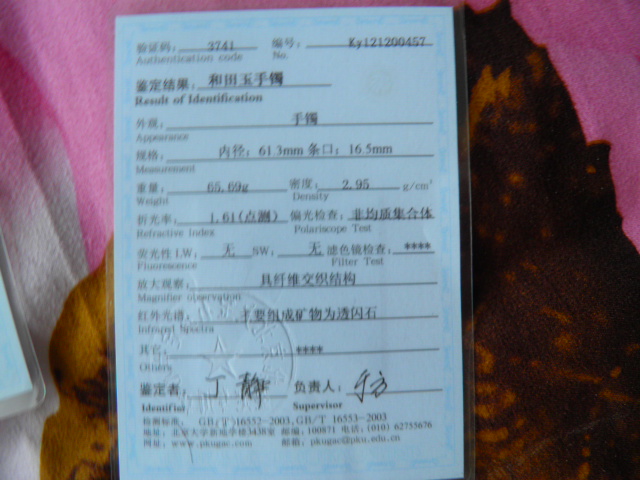 验证码: 3741 编号: Ky121200457
Authentication code No.
鉴定结果: 和田玉手镯
Result of Identification
外观: 手镯
Appearance
规格: 内径: 61.3mm 条口: 16.5mm
Measurement
重量: 65.69g 密度: 2.95 g/cm³
Weight Density
折光率: 1.61(点测) 偏光检查: 非均质集合体
Refractive Index Polariscope Test
荧光性 LW: 无 SW: 无 滤色镜检查: ****
Fluorescence Filter Test
放大观察: 具纤维交织结构
Magnifier observation
红外光谱: 主要组成矿物为透闪石
Infrared Spectra
其它: ****
Others
鉴定者: 丁静 负责人:
Identifier Supervisor
检测标准: GB/T 16552-2003,GB/T 16553-2003
地址: 北京大学新地学楼3438室 邮编: 100871 电话: (010) 62755676
网址: www.pkugac.com 邮箱: pkugac@pku.edu.cn